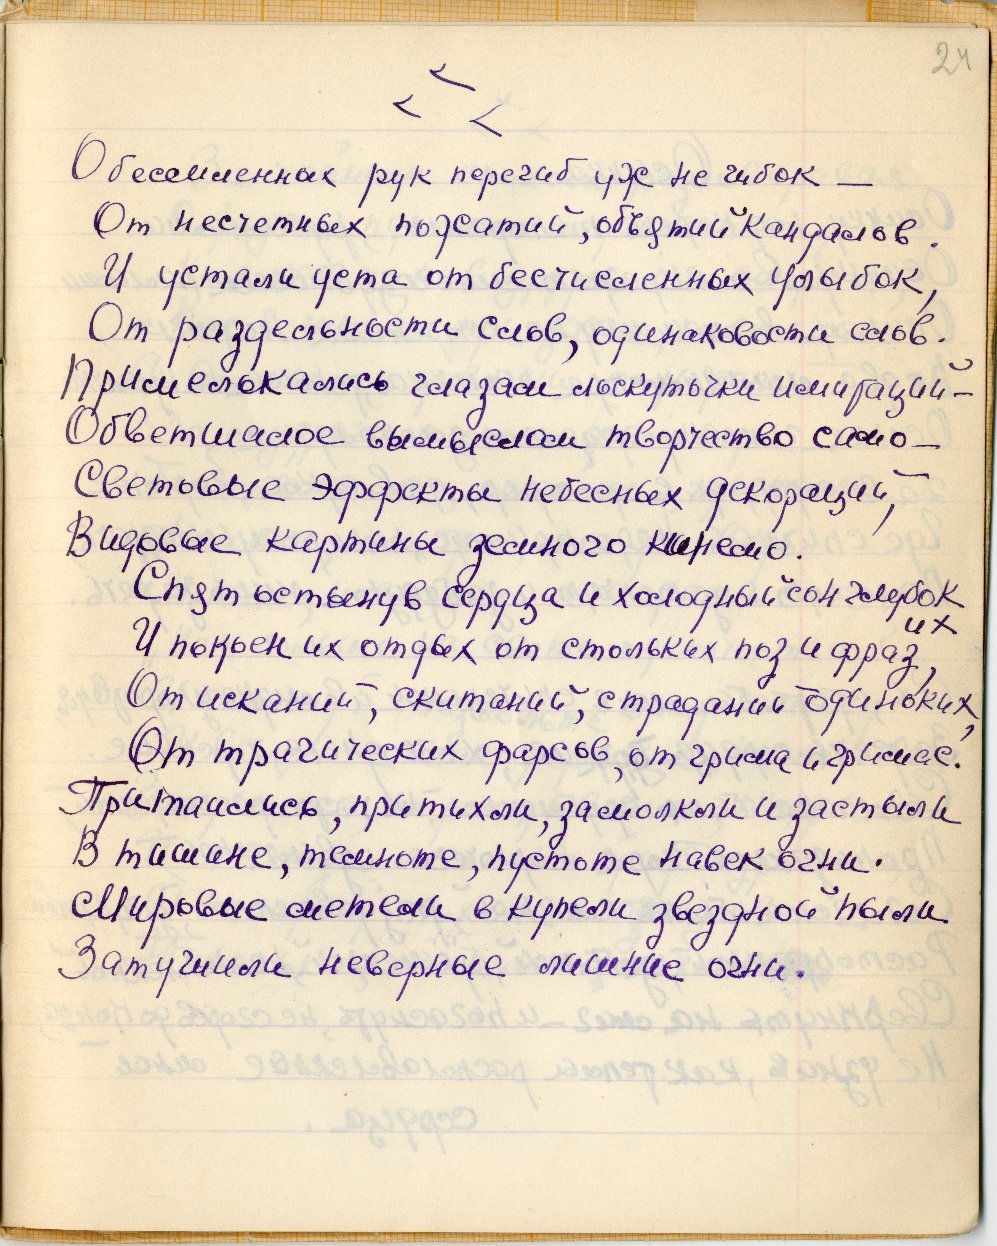 24
Обессиленных рук перегиб уж не гибок —
От несчетных пожатий, объятий кандалов.
И устали уста от бесчисленных улыбок,
От раздельности слов, одинаковости слов.
Примелькались глазам лоскуточки имитаций —
Обветшалое вымыслом творчество само —
Световые эффекты небесных декораций,
Видовые картины земного кинемо.
Спят остынув сердца и холодный сон глубок
их
И покоен их отдых от стольких поз и фраз,
От исканий, скитаний, страданий одиноких,
От трагических фарсов, от грима и гримас.
Притаились, притихли, замолкли и застыли
В тишине, темноте, пустоте навек огни.
Мировые метели в купели звездной пыли
Затушили неверные лишние огни.